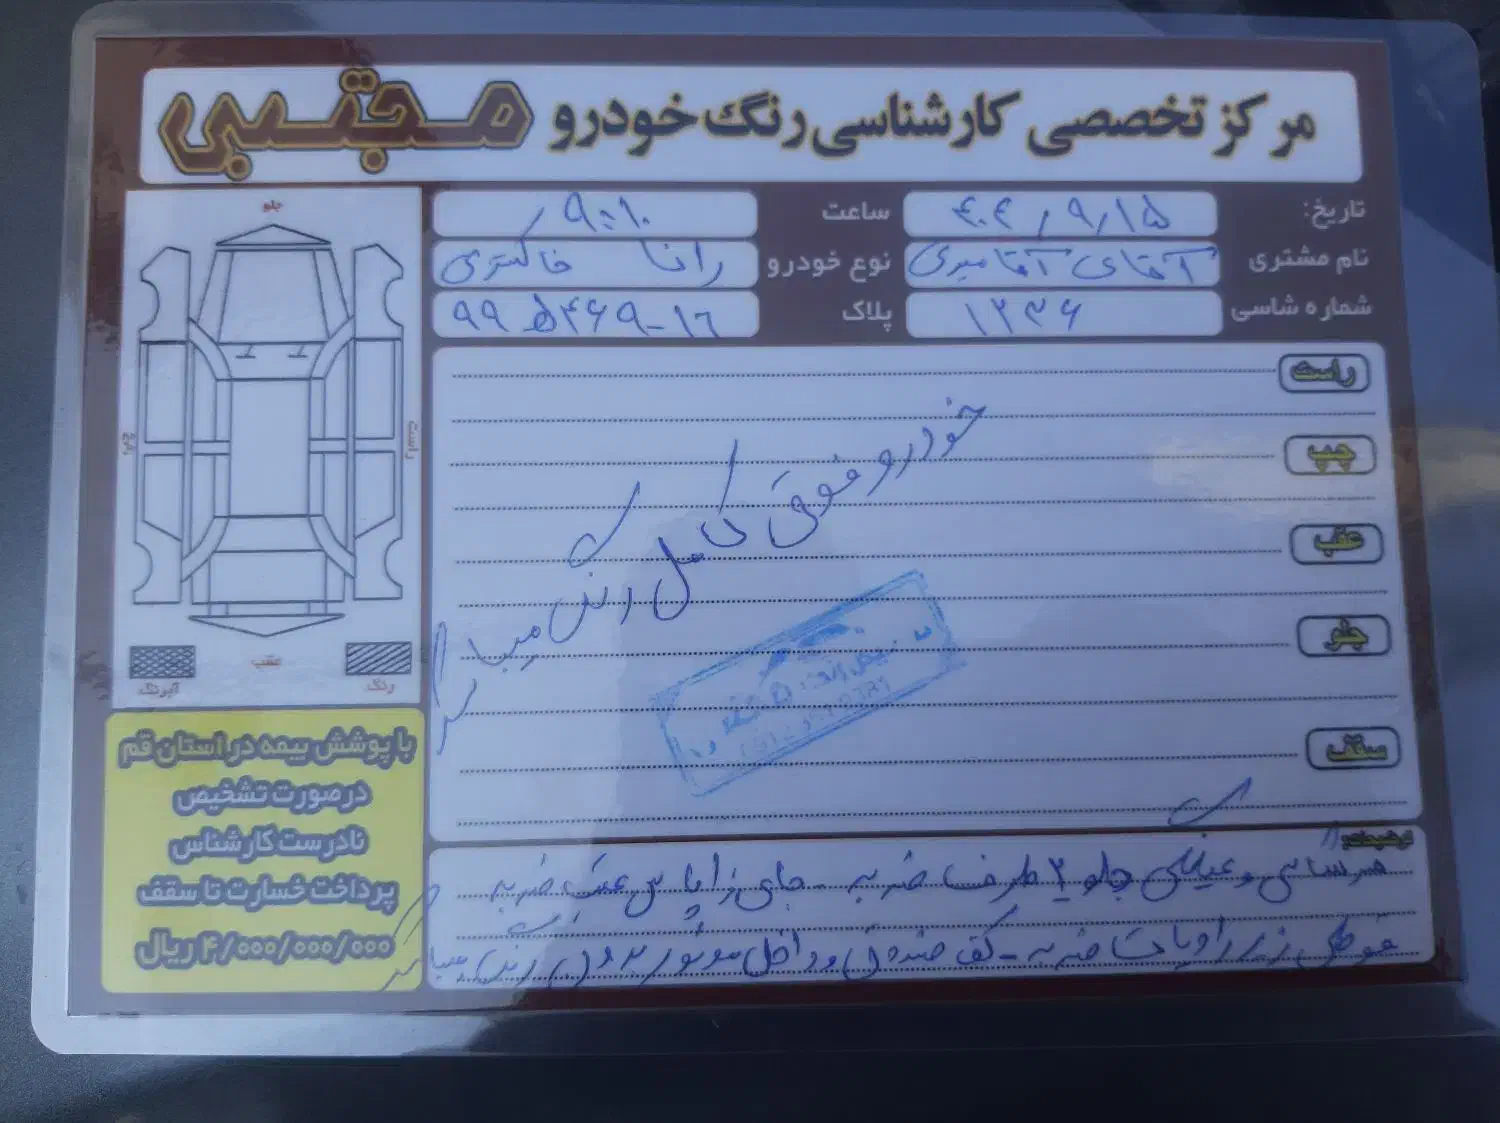 مرکز تخصصی کارشناسی رنگ خودرو مجتبی
تاریخ: ۴۰۴/۹/۱۵ ساعت ۹:۱۰
نام مشتری آقای آقامیری نوع خودرو رانا خاکستری
شماره شاسی ۱۲۳۶ پلاک ۹۹ ۴۶۹-۱۶
جلو
راست
چپ
عقب
رنگ
آبرنگ
راست
چپ
عقب
جلو
سقف
خودرو فوق کامل رنگ میباشد
با پوشش بیمه در استان قم
درصورت تشخیص
نادرست کارشناس
پرداخت خسارت تا سقف
۴/۰۰۰/۰۰۰/۰۰۰ ریال
توضیحات:
سرشاسی و جلو ۲ طرف ضربه - جای زاپاس عقب ضربه
زیر ضربه - کف صندوق و داخل موتور بدون رنگ میباشد